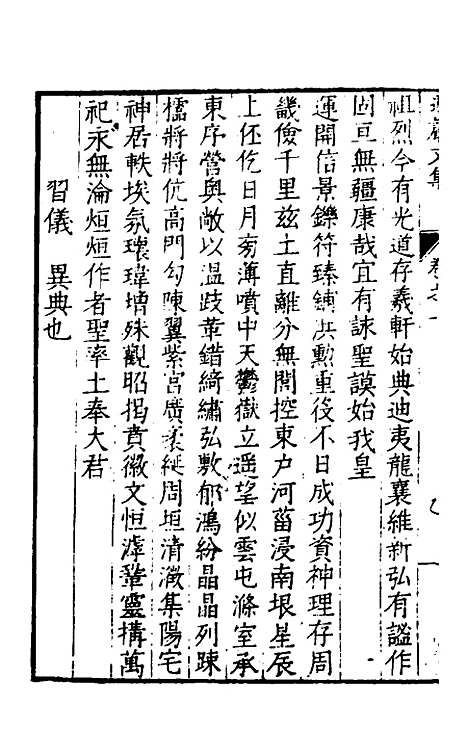 文集
卷之一
祖烈今有光道存羲軒始典迪夷龍襄維新弘有謐作
固亘無疆康哉宜有詠聖謨始我皇
運開信景鑠符臻鋪洪勲重筏不日成功資神理存周
畿儉千里兹土直離分無閣控東户河菑浸南垠星辰
上伾仡日月旁薄噴中天鬱嶽立遥望似雲屯滌室承
東序營奥敞以温跂葦錯綺繡弘敷郁鴻紛晶晶列踈
櫺將將伉高門勾陳翼紫宫廣袤綖周垣清瀓集陽宅
神居軼埃氛瓌瑋增殊觀昭揭賁徽文恒滹鞏靈構萬
祀永無淪烜烜作者聖率土奉大君
習儀 異典也